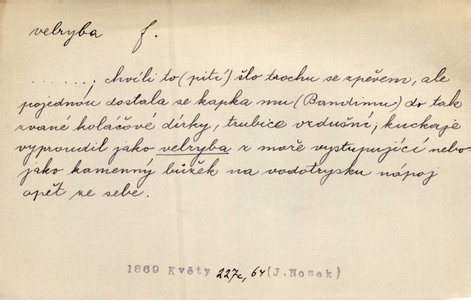 velryba f.
. . . . . . . chvíli to (pití) šlo trochu se zpěvem, ale
pojednou dostala se kapka mu (Bandimu) do tak
zvané koláčové dírky, trubice vzdušní, kuckaje
vyproudil jako velryba z moře vystupující nebo
jako kamenný bůžek na vodotrysku nápoj
opět ze sebe.
1869 Květy 227c, 64 (J. Nosek)